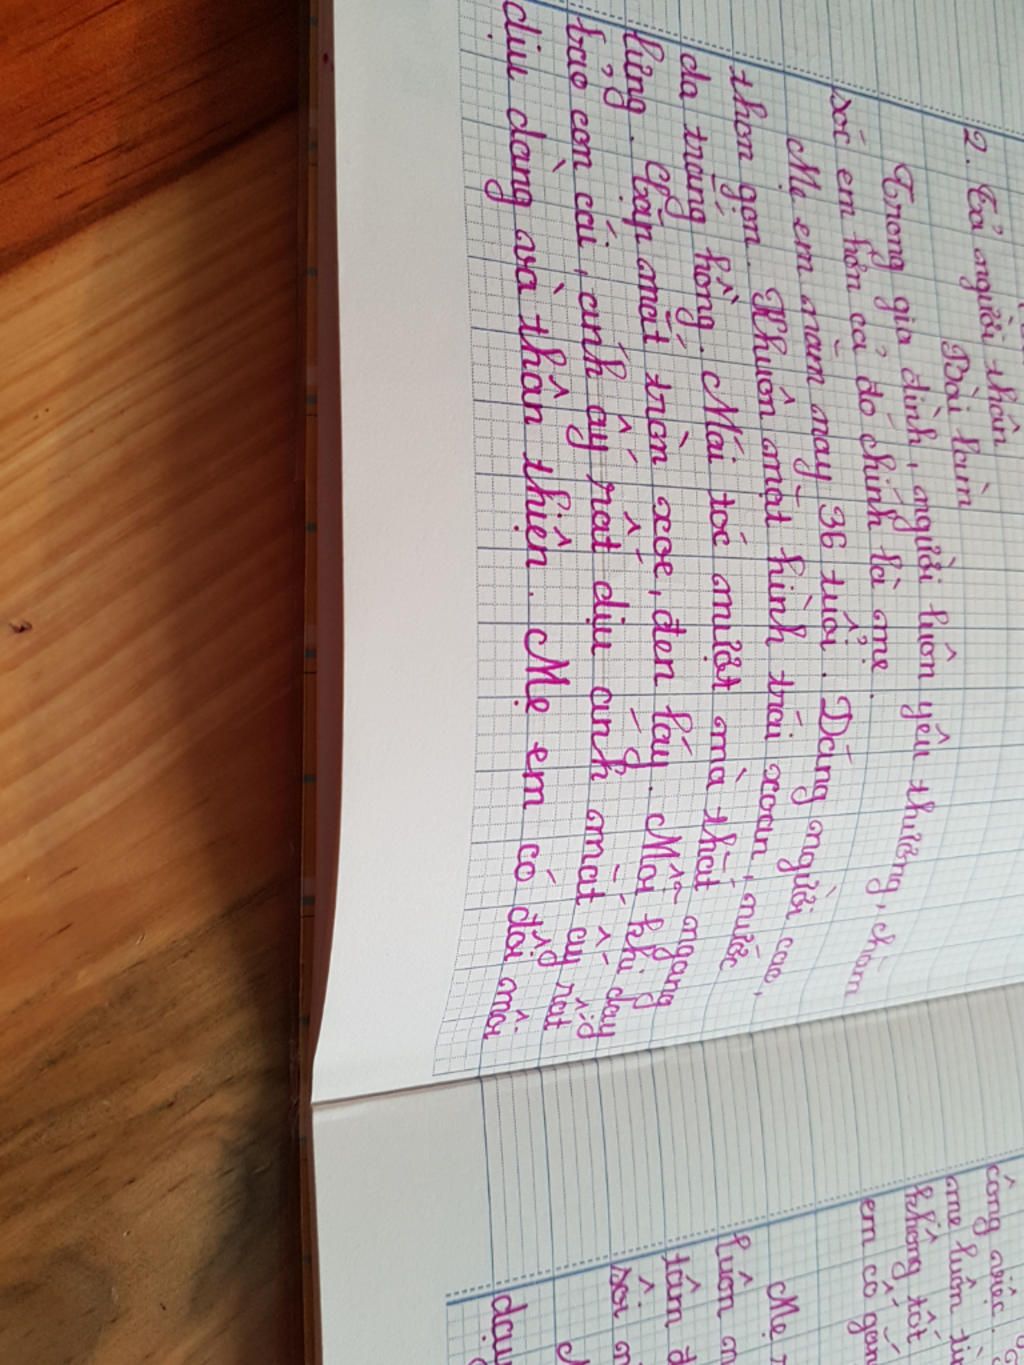 2. Tả người thân
Bài làm
Trong gia đình, người luôn yêu thương, chăm
sóc em hơn cả đó chính là mẹ.
Mẹ em năm nay 36 tuổi. Dáng người cao,
thon gọn. Khuôn mặt hình trái xoan, nước
da trắng hồng. Mái tóc mượt mà thắt ngang
lưng. Cặp mắt tròn xoe, đen láy. Mỗi khi dạy
bảo con cái, ánh ấy rất dịu ánh mắt ấy rất
dịu dàng và thân thiện. Mẹ em có đôi môi
công việc.
mẹ luôn
không tốt
em cố gắn
Mẹ
luôn
tâm
sôi
dạy